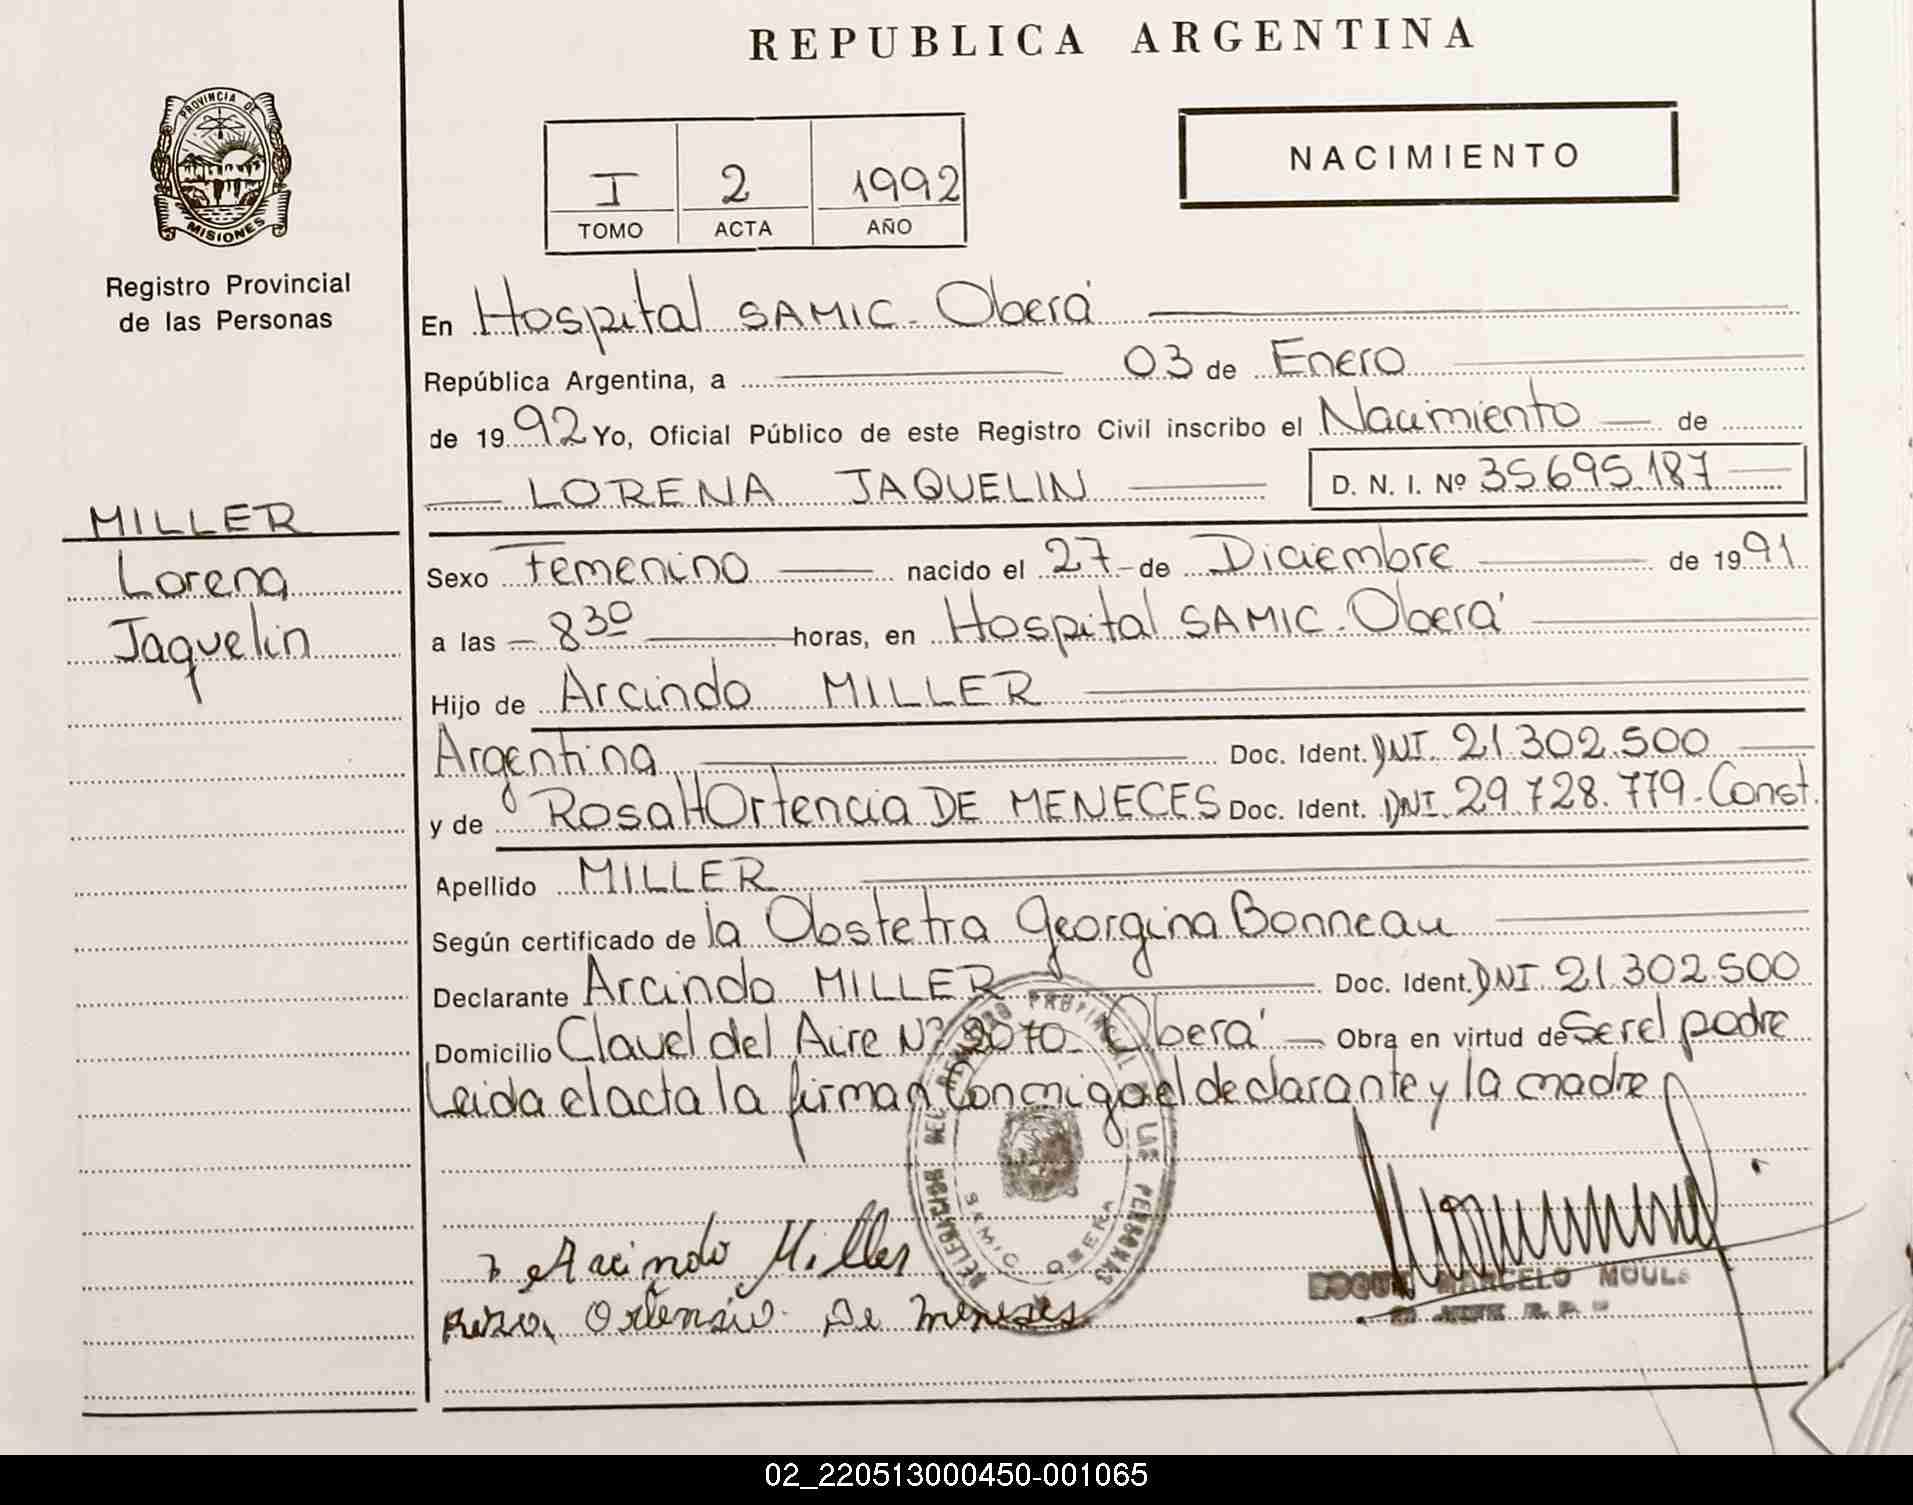 REPUBLICA ARGENTINA
PROVINCIA DE
MISIONES
Registro Provincial
de las Personas
I 2 1992
TOMO ACTA AÑO
NACIMIENTO
MILLER
Lorena
Jaquelin
En Hospital SAMIC - Oberá
República Argentina, a 03 de Enero
de 1992 Yo, Oficial Público de este Registro Civil inscribo el Nacimiento de
LORENA JAQUELIN D. N. I. Nº 35.695.187
Sexo Femenino nacido el 27 de Diciembre de 1991
a las 8 30 horas, en Hospital SAMIC - Oberá
Hijo de Arcindo MILLER
Argentina Doc. Ident. DNI. 21.302.500
y de Rosa HOrtencia DE MENECES Doc. Ident. DNI. 29.728.779 - Const.
Apellido MILLER
Según certificado de la Obstetra Georgina Bonneau
Declarante Arcindo MILLER Doc. Ident. DNI 21.302.500
Domicilio Clavel del Aire Nº 2070 - Oberá Obra en virtud de Ser el padre
Leida el acta la firman Conmigo el declarante y la madre
SAMIC OBERA
Arcindo Miller
Rosa Ortensia De Meneses
ROQUE MARCELO MOULA
02_220513000450-001065